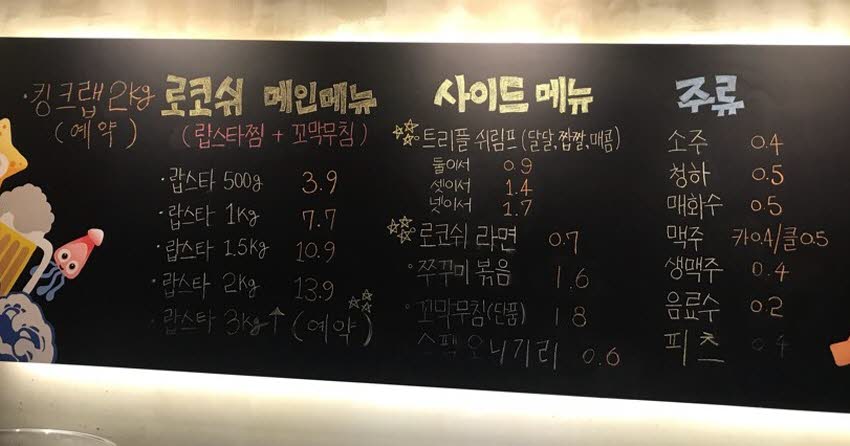 ·킹크랩 2kg
(예약)
로코쉬 메인메뉴
(랍스타찜 + 꼬막무침)
·랍스타 500g 3.9
·랍스타 1kg 7.7
·랍스타 1.5kg 10.9
·랍스타 2kg 13.9
·랍스타 3kg↑ (예약)
사이드 메뉴
트리플 쉬림프 (달달,짭짤,매콤)
둘이서 0.9
셋이서 1.4
넷이서 1.7
로코쉬 라면 0.7
·쭈꾸미 볶음 1.6
·꼬막무침(단품) 1.8
스팸 오니기리 0.6
주류
소주 0.4
청하 0.5
매화수 0.5
맥주 카0.4/클0.5
생맥주 0.4
음료수 0.2
피츠 0.4